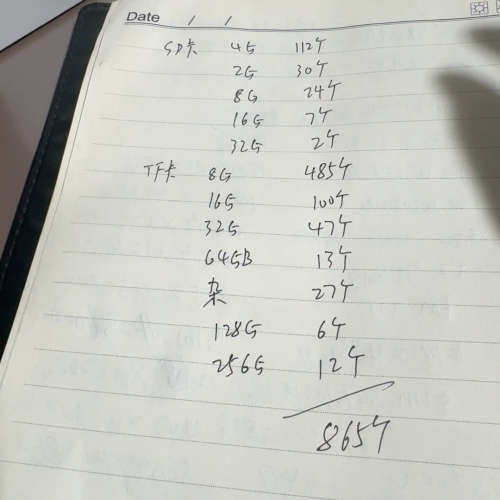 Date / /
SD卡 4G 112个
2G 30个
8G 24个
16G 7个
32G 2个
TF卡 8G 485个
16G 100个
32G 47个
64GB 13个
杂 27个
128G 6个
256G 12个
865个